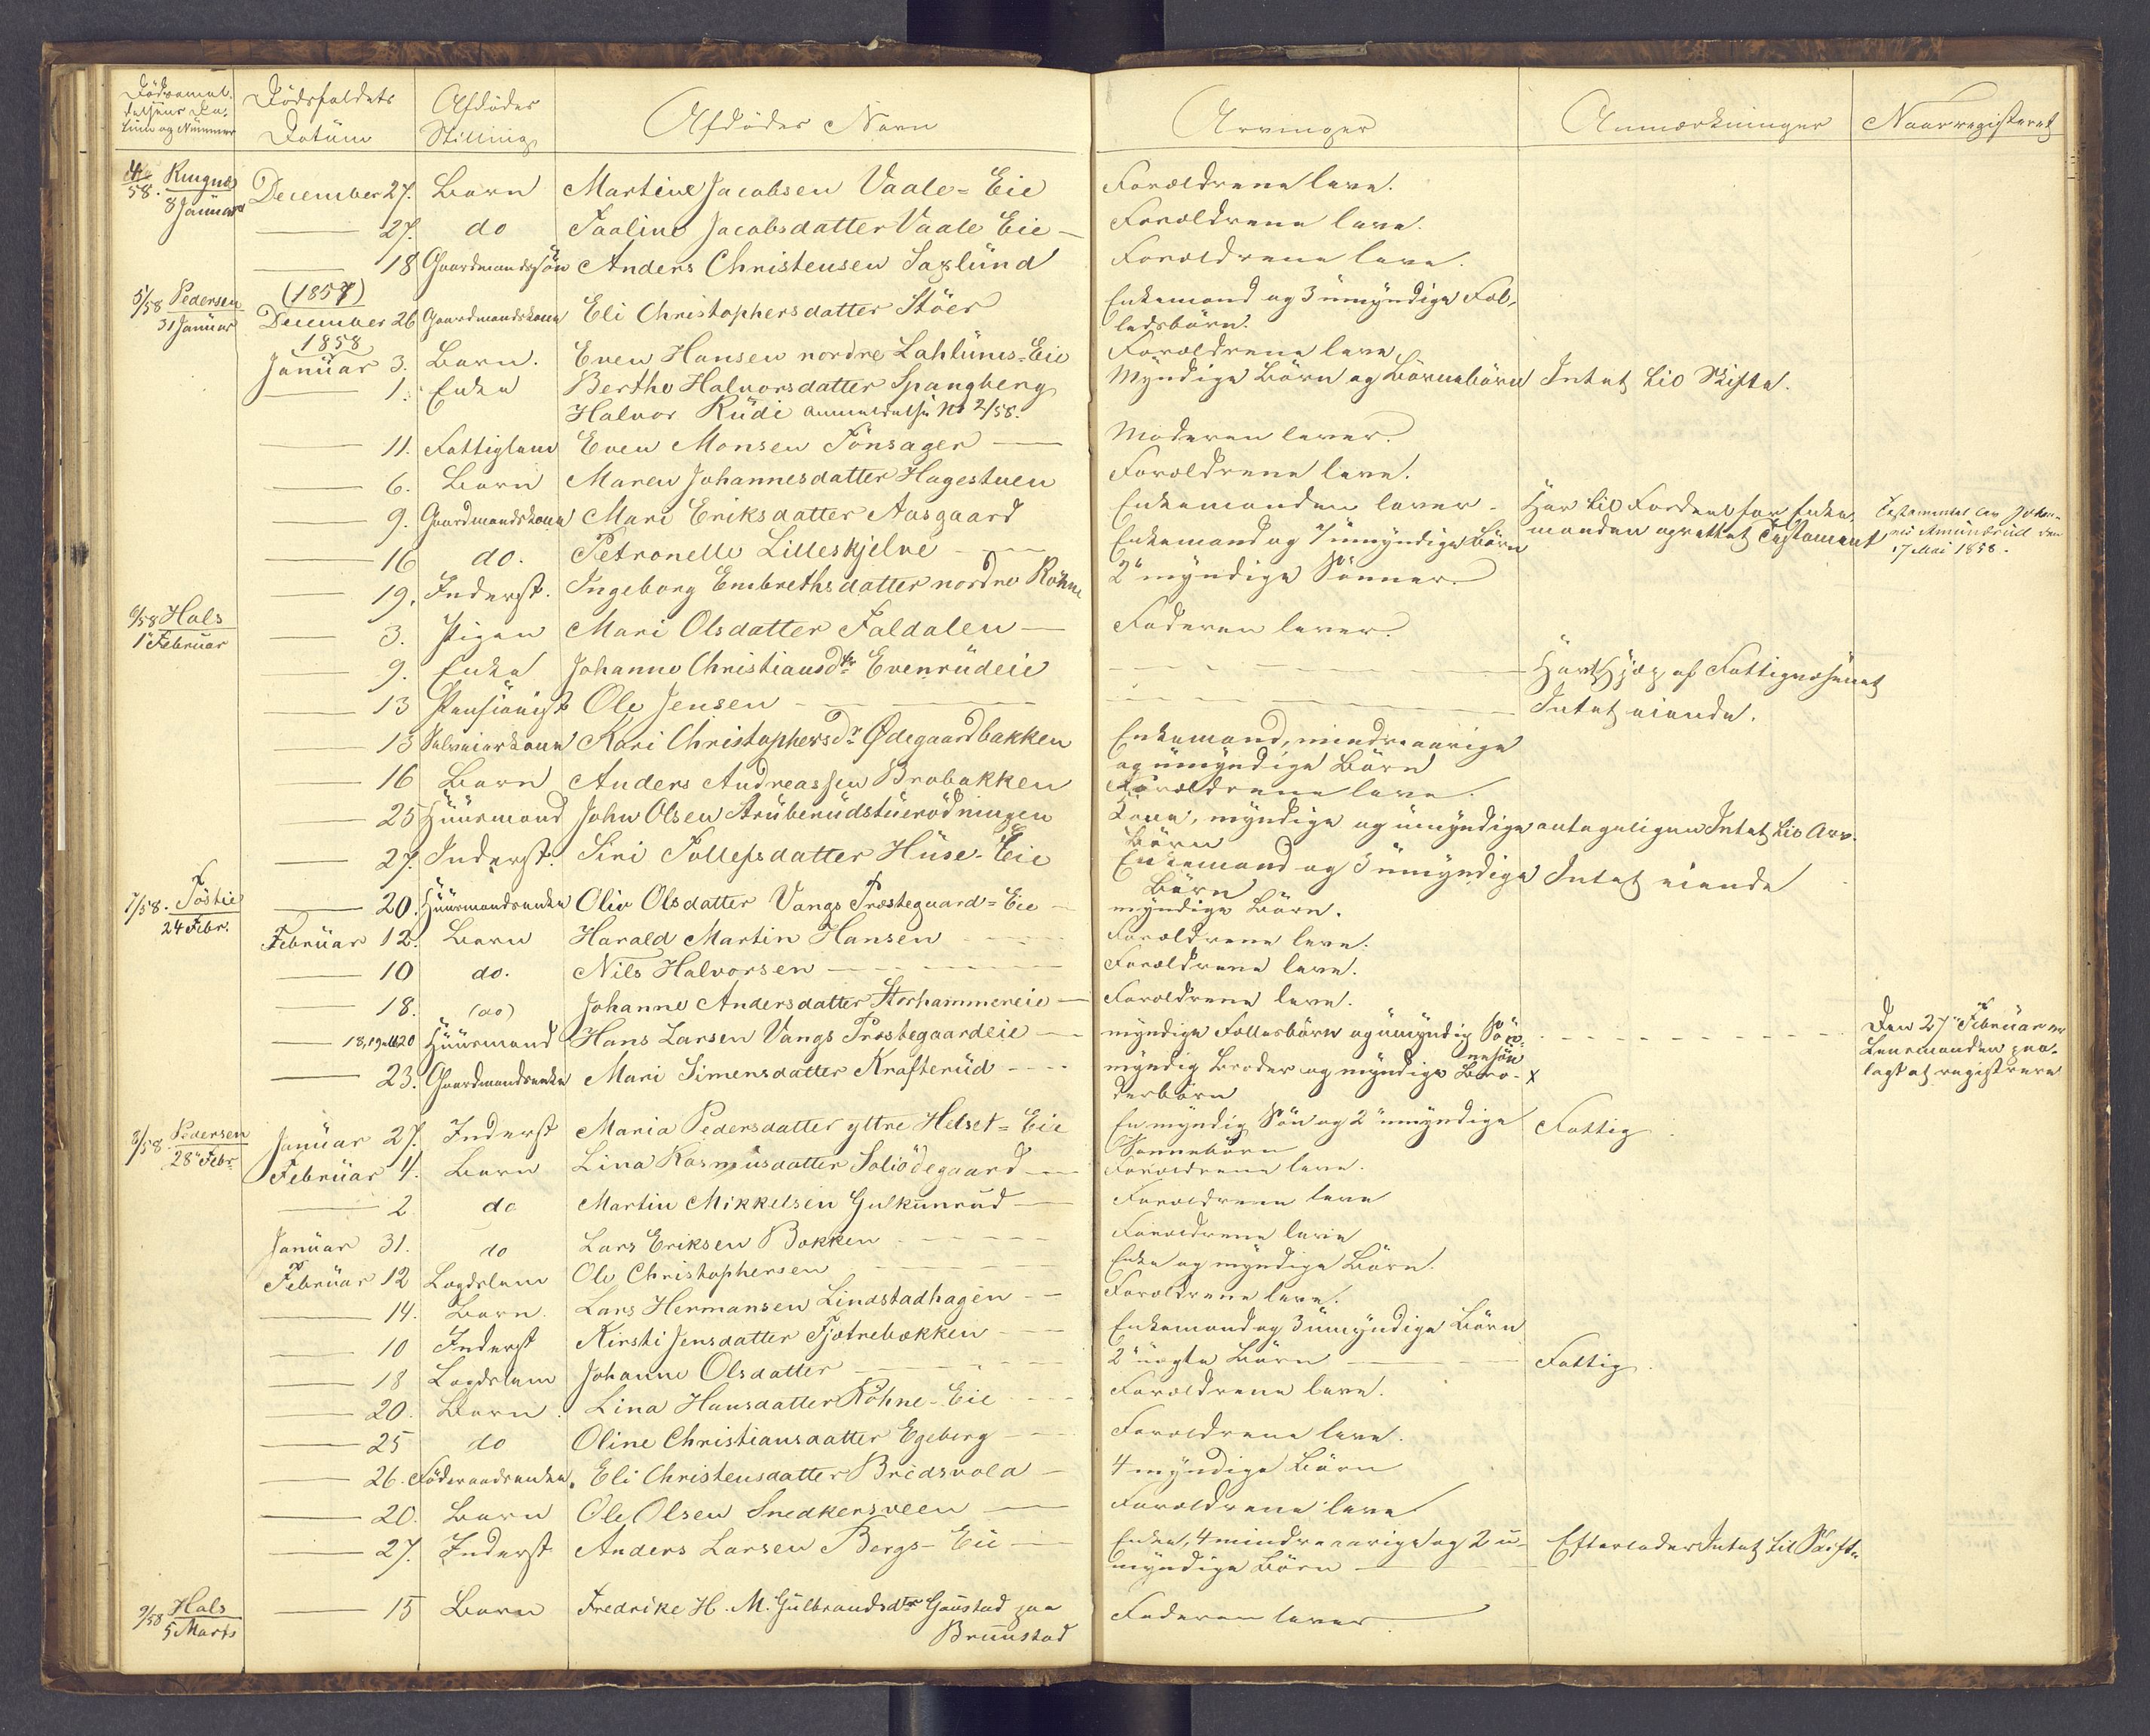 Dødsanmel-
delsens Da-
tum og Nummer
Dødsfaldets
Datum
Afdødes
Stilling
Afdødes Navn
Arvinger
Anmærkninger
Naar registeret
4/58. Ringnæs 8 Januar December 27. Barn Martine Jacobsen Vaale-Eie Forældrene leve.
27. do Jacobsdatter Vaale Eie Forældrene leve.
18 Gaardmandssøn Anders Christensen Saxlund Forældrene leve.
5/58 Pedersen 31 Januar (1857) December 26 Gaardmandskone Eli Christophersdatter Stöer Enkemand og 3 umyndige Fæl-
ledsbörn.
1858 Januar 3. Barn. Even Hansen nordre Lahlums-Eie Forældrene leve
1. Enke Berthe Halvorsdatter Spangberg Myndige Börn og Börnebörn Intet til Skifte.
Halvor Rudi Anmeldelse No 2/58.
11. Fattiglem Even Monsen Tönsager Moderen lever.
6. Barn Maren Johannesdatter Hagestuen Forældrene leve.
9. Gaardmandskone Mari Eriksdatter Aasgaard Enkemanden lever. Har til Fordeel for Enke-
manden oprettet Testament
Testamentet
Amundrud den
17 Mai 1858.
16 do. Petronelle Lilleskjelve Enkemand og 7 umyndige Börn
19. Inderst. Ingeborg Embrethsdatter nordre Röhne 2 myndige Sönner.
6/58 Hals 1 Februar 3. Pigen Mari Olsdatter Faldalen Faderen lever.
9. Enke Johanne Christiansdtr Evenrudeie Havt Hjælp af Fattigvæsenet
13 Pensionist Ole Jensen Intet eiende.
13 Selveierkone Kari Christophersdr Ødegaardbakken Enkemand, mindreaarige
og umyndige Börn
16 Barn Anders Andreassen Brobakken Forældrene leve.
25 Huusmand John Olsen Aruberudstuerödningen Kone, myndige og umyndige Börn antageligen Intet til Arv.
27. Inderst. Siri Tollefsdatter Huse-Eie Enkemand og 3 umyndige Börn Intet eiende
7/58. Töstie 24 Febr. 20. Huusmandsenke Olia Olsdatter Vangs Præstegaard-Eie myndige Börn.
Februar 12. Barn Harald Martin Hansen Forældrene leve.
10 do. Nils Halvorsen Forældrene leve.
18. (do) Johanne Andersdatter Storhammereie Forældrene leve.
18, 19 ell 20 Huusmand Hans Larsen Vangs Præstegaardeie myndige Fællesbörn og umyndig Sön-
nesön
Den 27 Februar er
Lensmanden paa-
lagt at registrere
23. Gaardmandsenke Mari Simensdatter Krafterud myndig Broder og myndige Bro- x
derbörn
8/58. Pedersen 28 Febr. Januar 27. Inderst Maria Pedersdatter yttre Helset-Eie En myndig Sön og 2 umyndige Fattig
Sönnebörn
Februar 4. Barn Lina Rasmusdatter Soliödegaard Forældrene leve.
2 do Martin Mikkelsen Gulkunrud Forældrene leve
Januar 31. do Lars Eriksen Bakken Forældrene leve
Februar 12 Lægdslem Ole Christophersen Enke og myndige Börn.
14. Barn Lars Hermansen Lindstadhagen Forældrene leve.
10 Inderst Kirsti Jensdatter Fjætrebækken Enkemand og 3 umyndige Börn
18 Lægdslem Johanne Olsdatter 2 uægte Börn Fattig.
20. Barn Lina Hansdatter Röhne-Eie Forældrene leve.
25 do Oline Christiansdatter Egeberg Forældrene leve.
26. Föderaadsenke Eli Christensdatter Bredsvold 4 myndige Börn
20. Barn Ole Olsen Snedkersveen Forældrene leve
27. Inderst Anders Larsen Bergs-Eie Enke, 4 mindreaarige og 2 u- Efterlader Intet til Skifte
myndige Börn
9/58 Hals 5 Marts 15 Barn Fredrike H. M. Gulbrandsdtr Gaustad paa Faderen lever
Bruustad